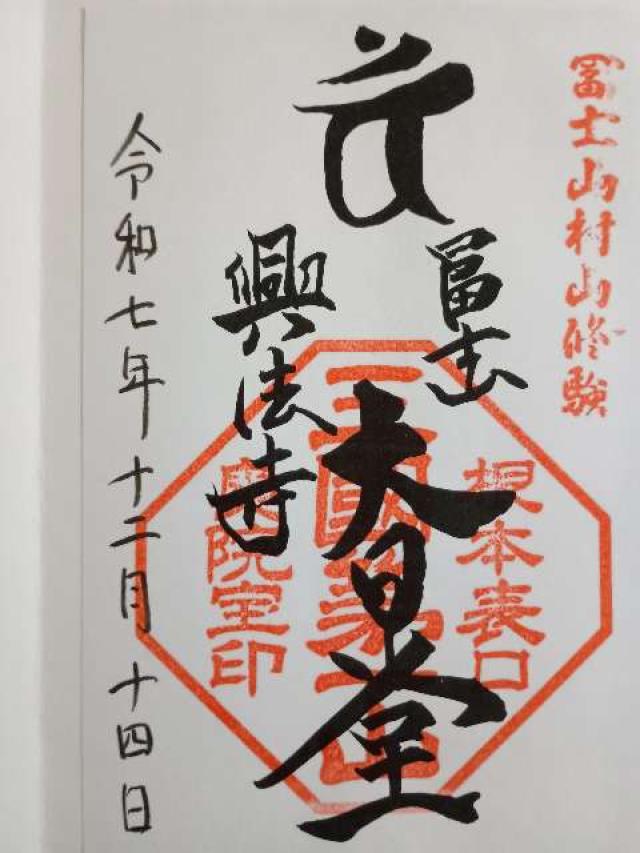 冨士山村山修験
冨士
根本表口
大日堂
三國第一山
興法寺
奥院室印
令和七年十二月十四日